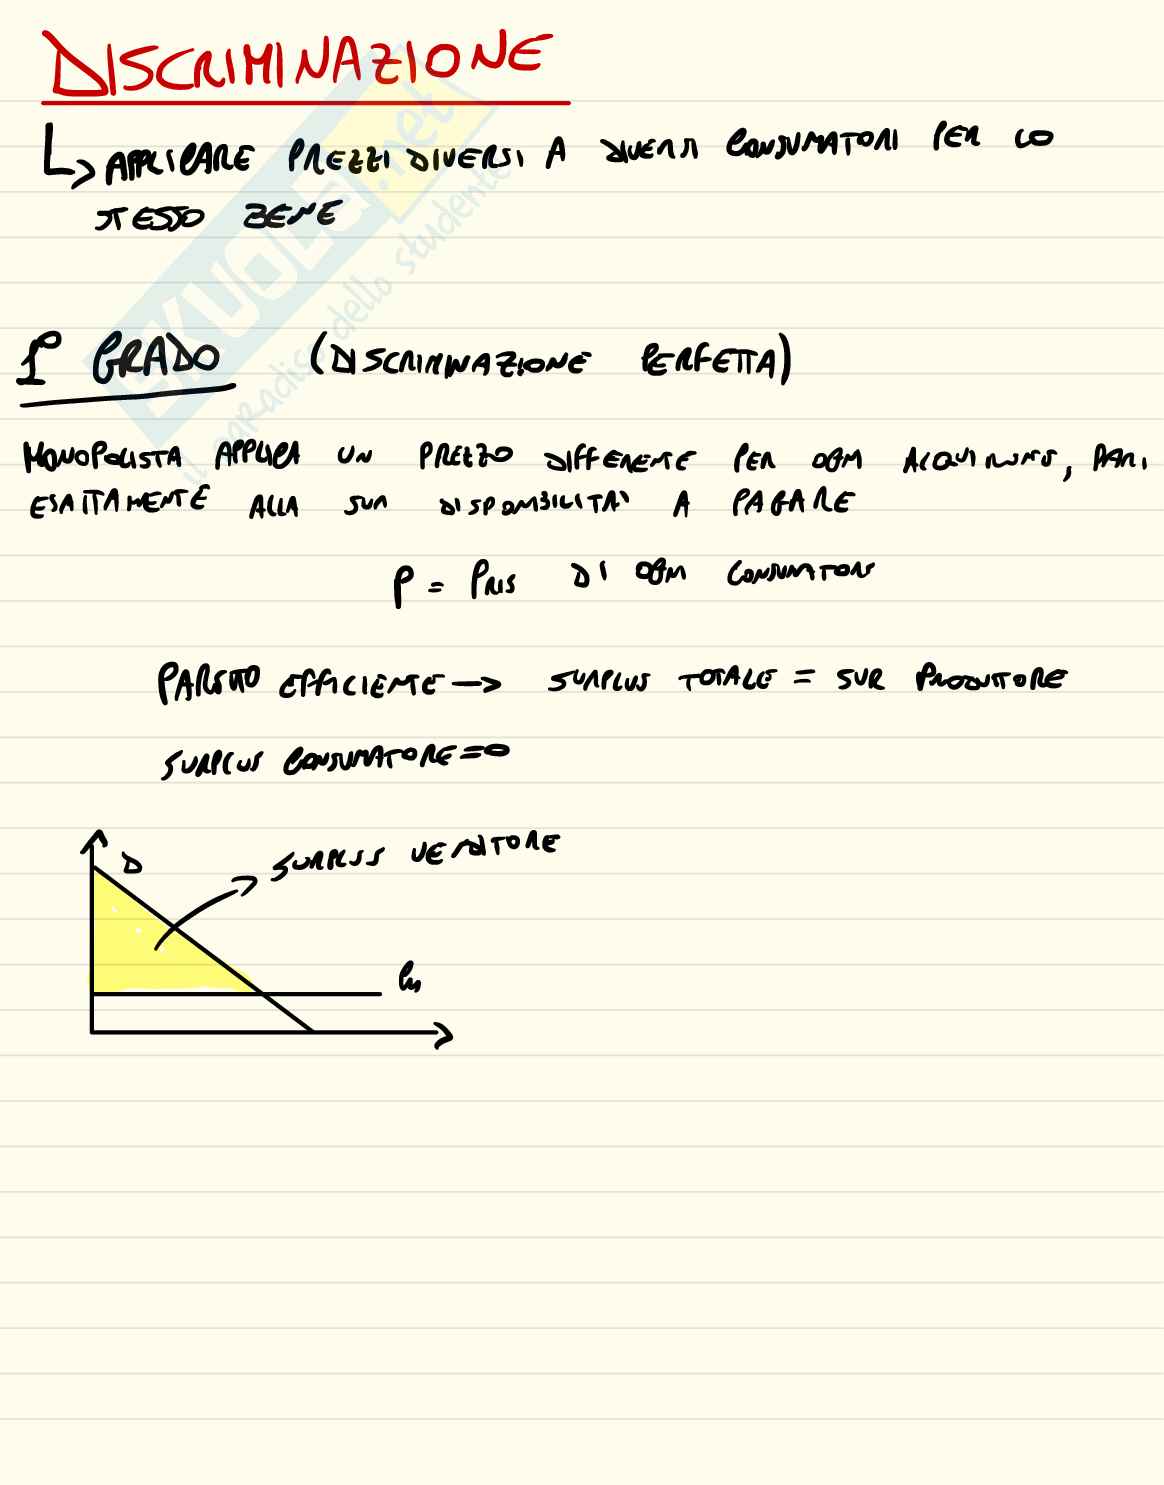 DISCRIMINAZIONE
↳ APPLICARE PREZZI DIVERSI A DIVERSI CONSUMATORI PER LO
STESSO BENE
1° GRADO (DISCRIMINAZIONE PERFETTA)
MONOPOLISTA APPLICA UN PREZZO DIFFERENTE PER OGNI ACQUIRENTE, PARI
ESATTAMENTE ALLA SUA DISPONIBILITÀ A PAGARE
P = PRIS DI OGNI CONSUMATORE
PARETO EFFICIENTE → SURPLUS TOTALE = SUR PRODUTTORE
SURPLUS CONSUMATORE = 0
D
SURPLUS VENDITORE
SKUOLA.net
il paradiso dello studente